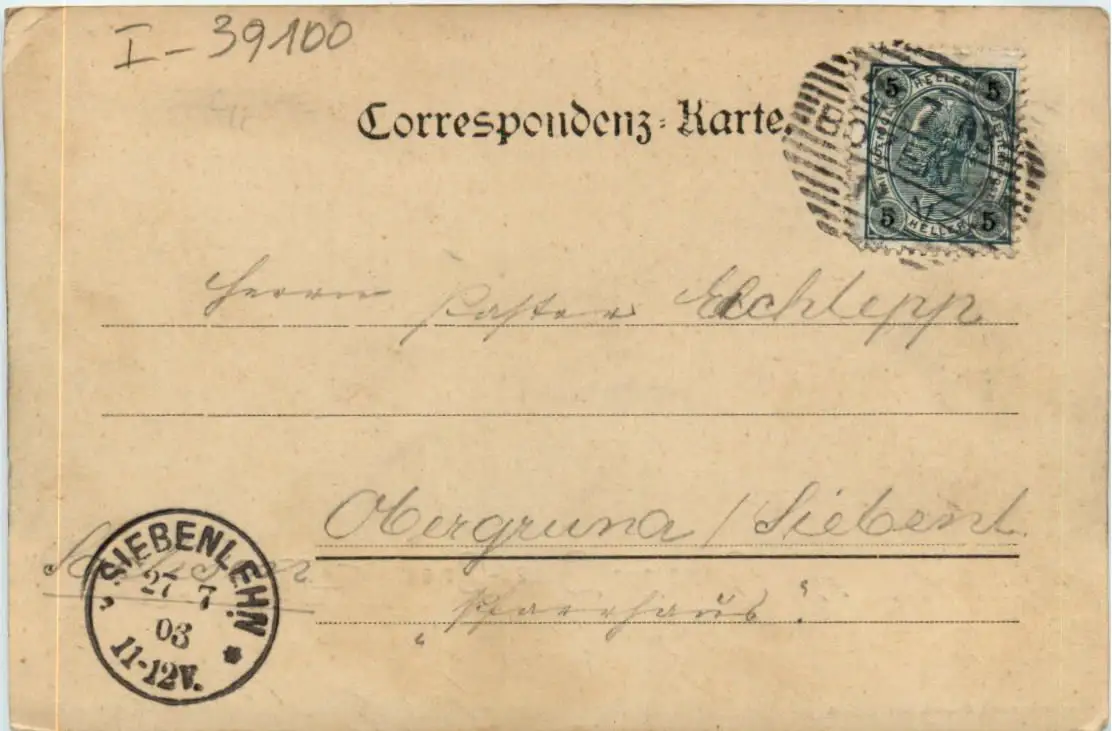 I - 39100
Correspondenz-Karte.
5 HELLER 5
5 HELLER 5
Herrn Pastor
Obergruna / Siebenl.
"Pfarrhaus".
SIEBENLEHN
27 7
03
11-12V.